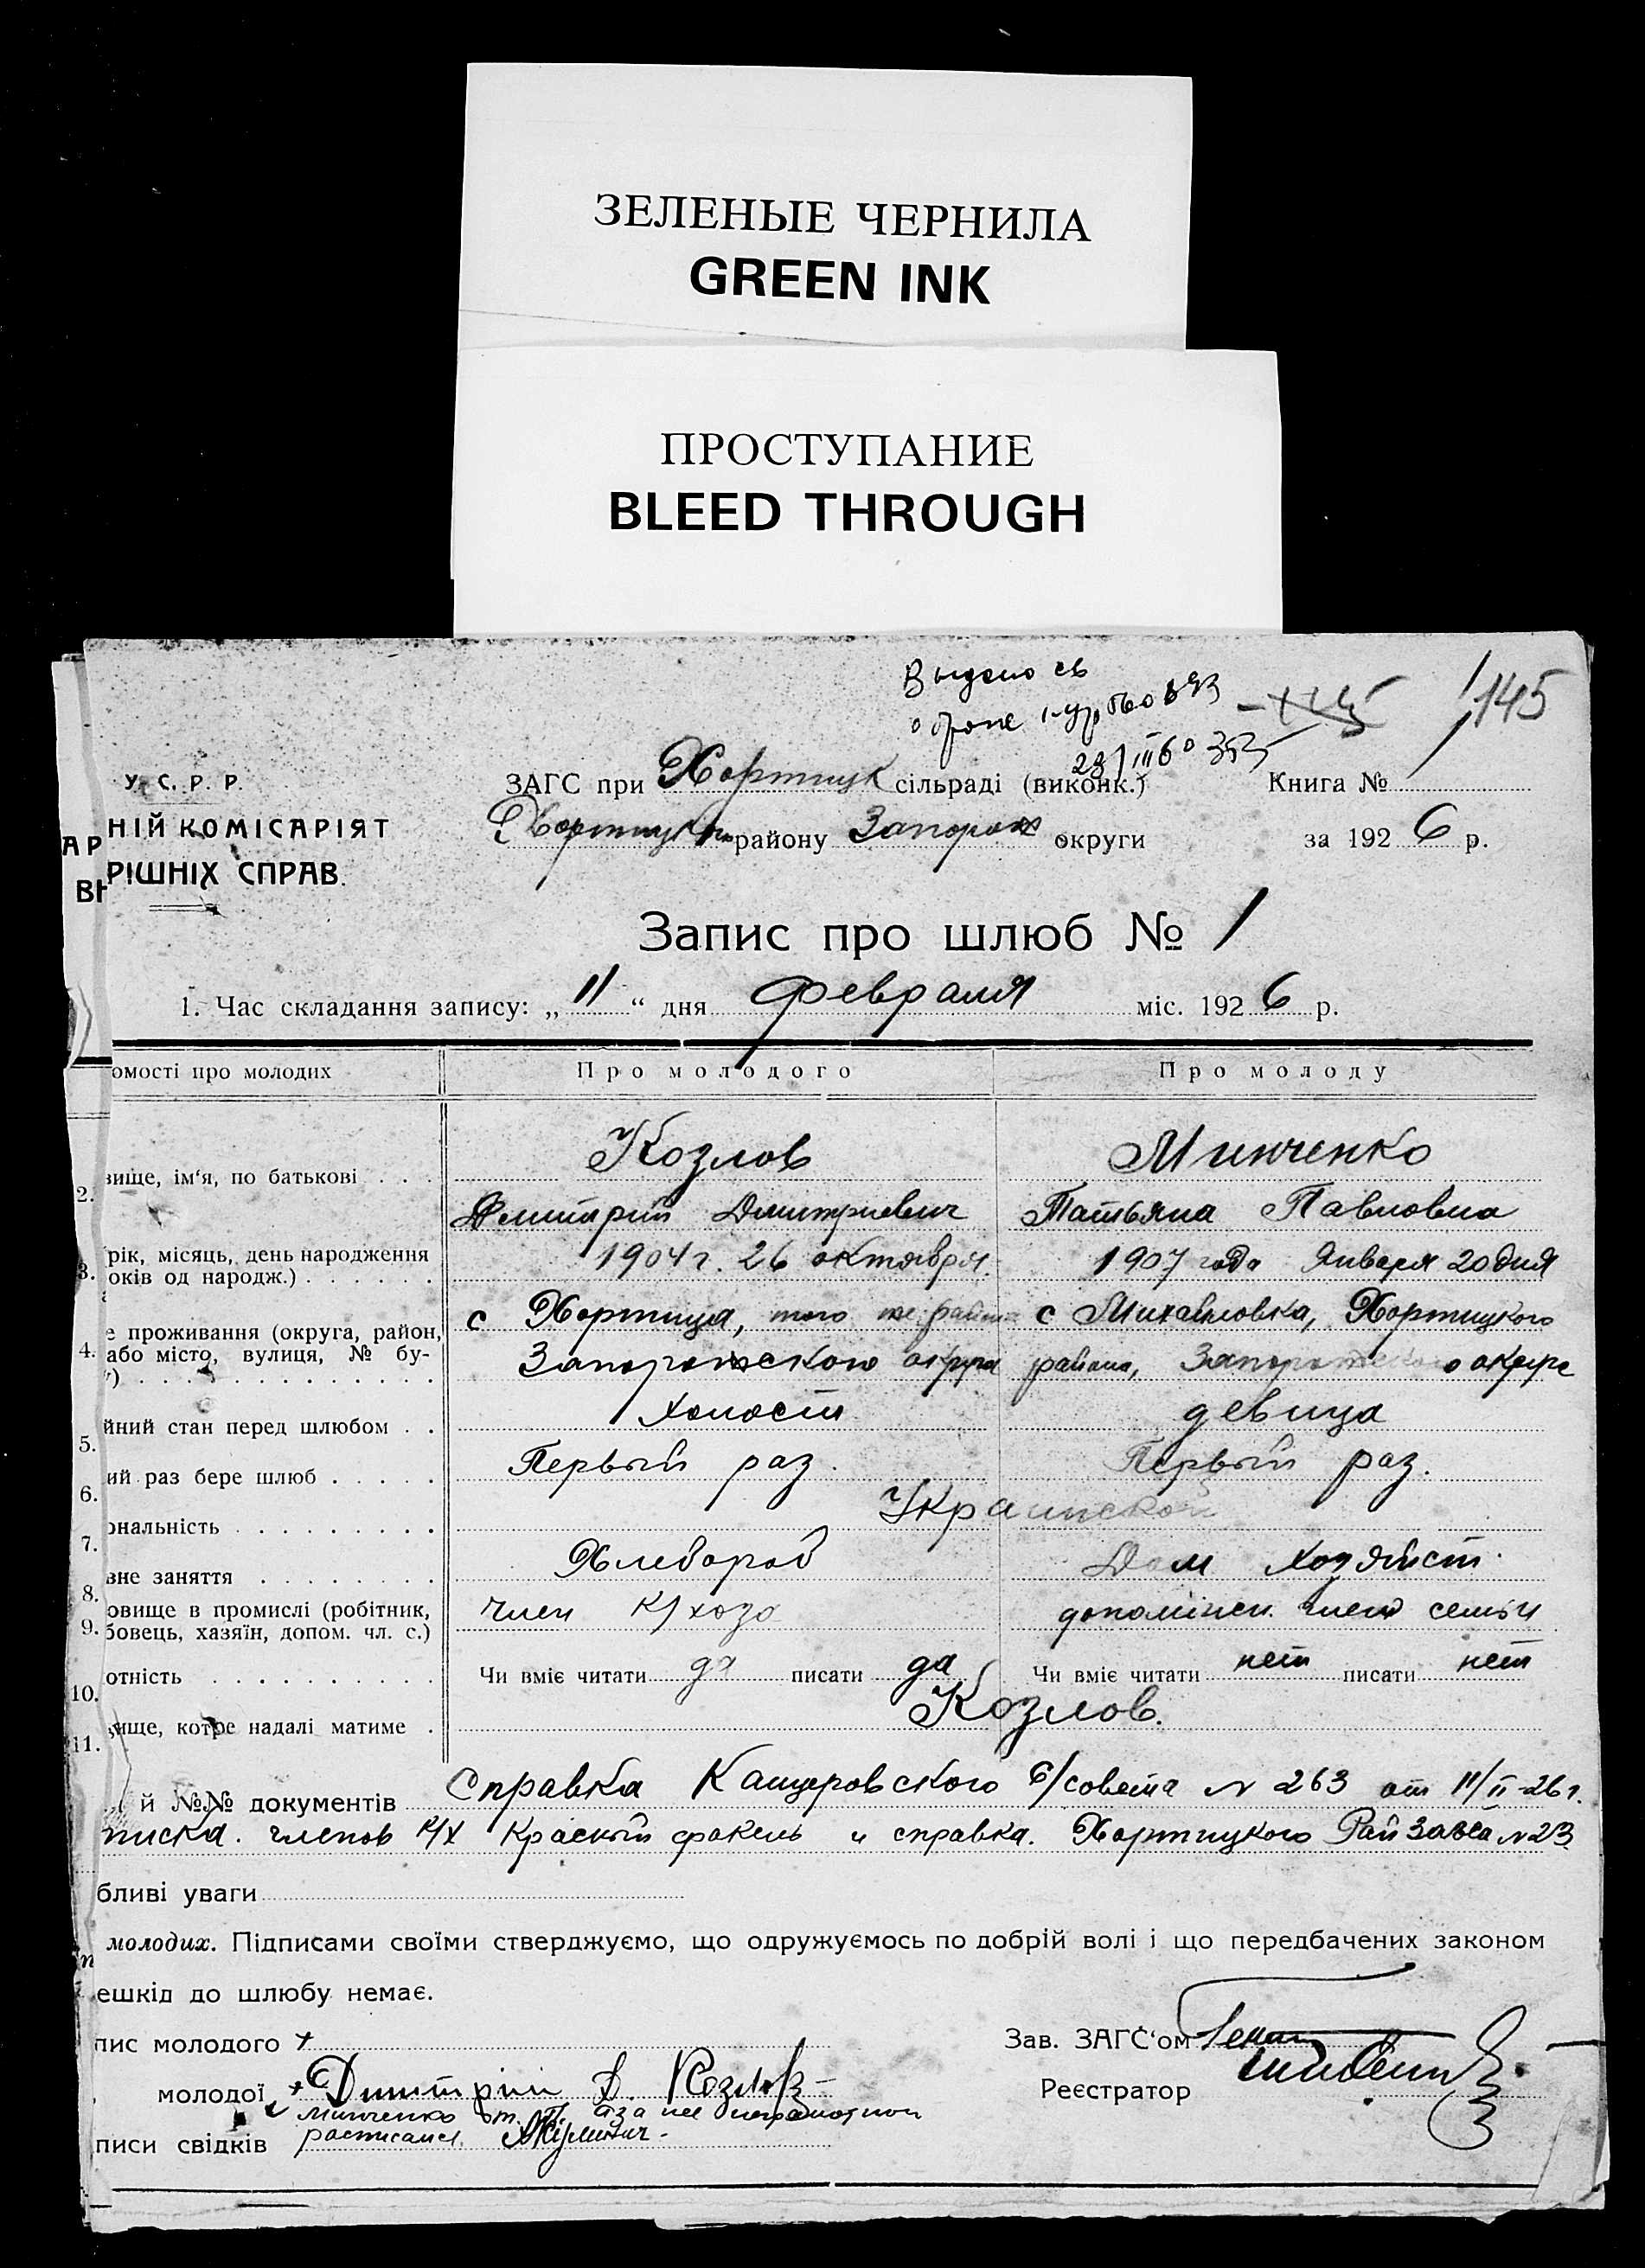 ЗЕЛЕНЫЕ ЧЕРНИЛА
GREEN INK
ПРОСТУПАНИЕ
BLEED THROUGH
Выдано св
145
23/III 60
У. С. Р. Р.
ЗАГС при Хортицк сільраді (виконк.)
Книга №
АР НІЙ КОМІСАРІЯТ
Хортицкого району Запорож округи
за 192 6 р.
ВН РІШНІХ СПРАВ.
Запис про шлюб № 1
1. Час складання запису: „ 11 “ дня февраля міс. 192 6 р.
омості про молодих
Про молодого
Про молоду
Козлов
Минченко
2. вище, ім'я, по батькові
Дмитрий Дмитриевич
Татьяна Павловна
3. рік, місяць, день народження
оків од народж.)
1904 г. 26 октября.
1907 года Января 20 дня
4. е проживання (округа, район,
або місто, вулиця, № бу-
с Хортица, того же района
Запорожского округа
с Михайловка, Хортицкого
района, Запорожского округа
5. йний стан перед шлюбом
холост
девица
6. ий раз бере шлюб
Первый раз.
Первый раз.
7. ональність
Украинской
8. вне заняття
Хлебороб
Дом хозяйст.
9. овище в промислі (робітник,
бовець, хазяїн, допом. чл. с.)
член к/хоза
член семьи
10. отність
Чи вміє читати да писати да
Чи вміє читати нет писати нет
11. ище, котре надалі матиме
Козлов.
й №№ документів Справка Кащеровского С/совета № 263 от 11/II-26 г.
писка. членов к/х Красный факель и справка. Хортицкого РайЗагса № 23
бливі уваги
молодих. Підписами своїми стверджуємо, що одружуємось по добрій волі і що передбачених законом
ешкід до шлюбу немає.
пис молодого +
Зав. ЗАГС'ом
молодої + Димитрий Д. Козлов
Реєстратор
Минченко Т. П. а за нее неграмотной
писи свідків расписался